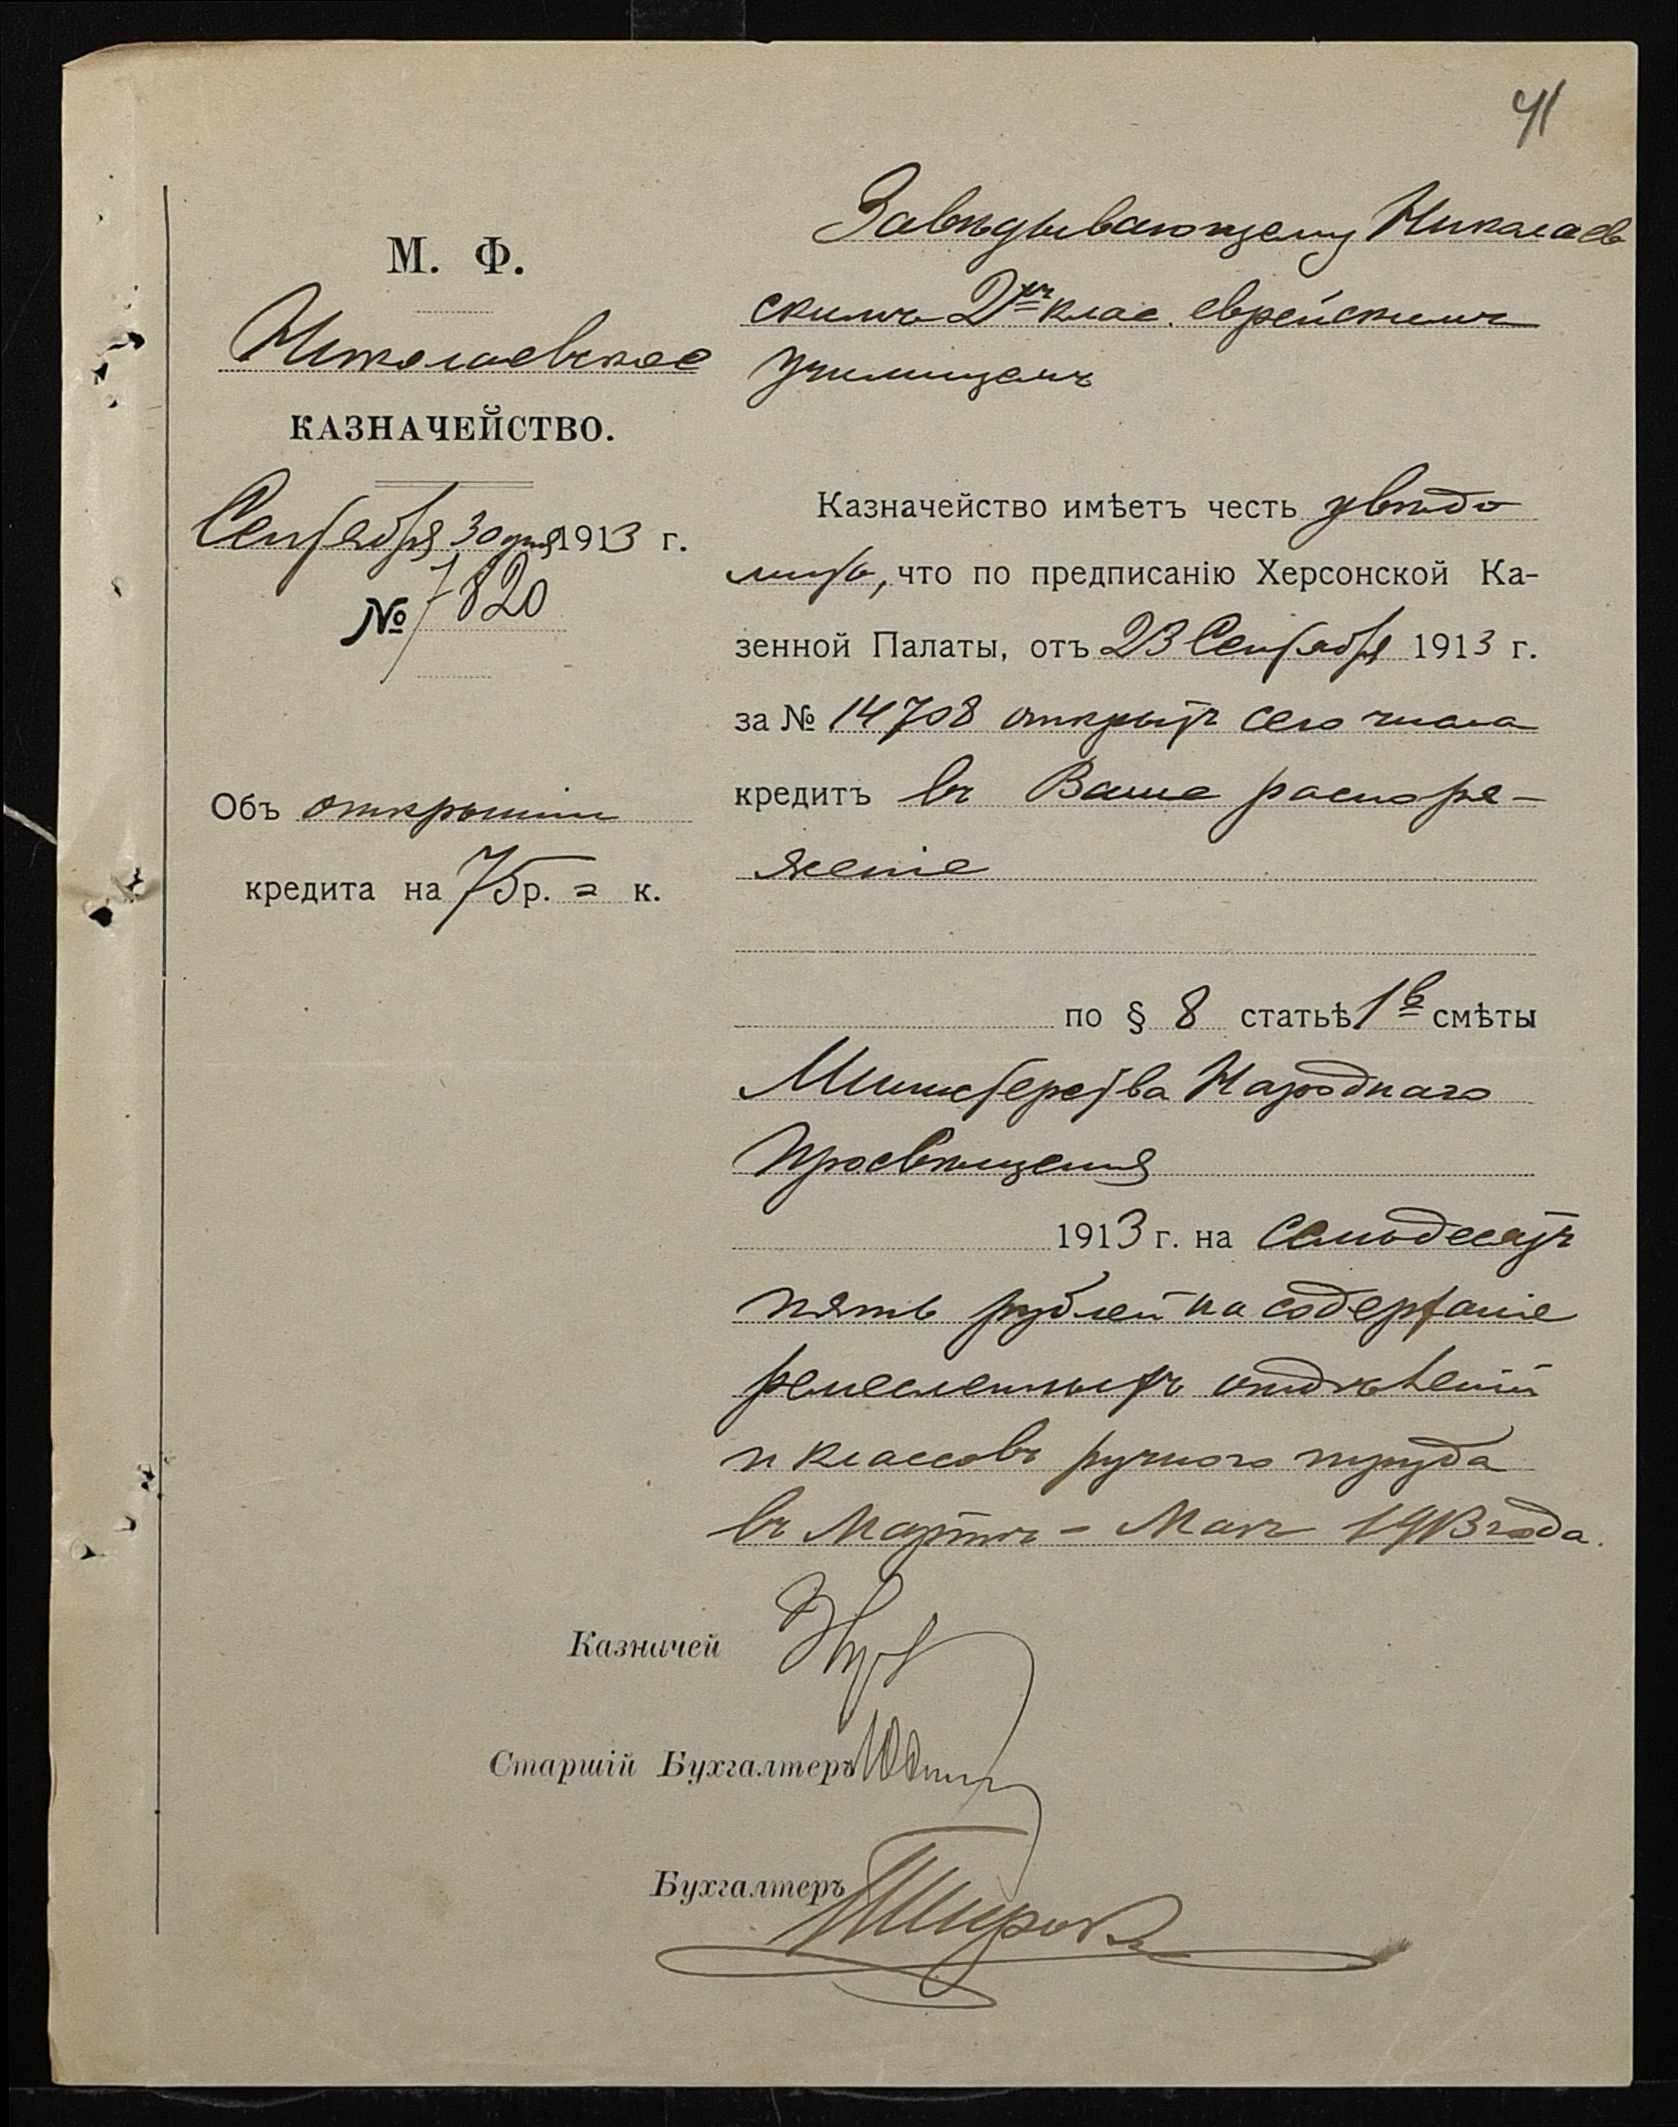 41
М. Ф.
Николаевское
КАЗНАЧЕЙСТВО.
Сентября 30 дня 1913 г.
№ 7820
Объ открытіи
кредита на 75 р. = к.
Завѣдывающему Николаев
скимъ 2хъ клас. еврейскимъ
училищемъ
Казначейство имѣетъ честь увѣдо
мить, что по предписанію Херсонской Ка-
зенной Палаты, отъ 23 Сентября 1913 г.
за № 14708 открытъ сего числа
кредитъ въ Ваше распоря-
женіе
по § 8 статьѣ 1в смѣты
Министерства Народнаго
Просвѣщенія
1913 г. на семьдесятъ
пять рублей на содержаніе
ремесленныхъ отдѣленій
и классовъ ручного труда
въ Мартѣ - Маѣ 1913 года.
Казначей
Старшій Бухгалтеръ
Бухгалтеръ